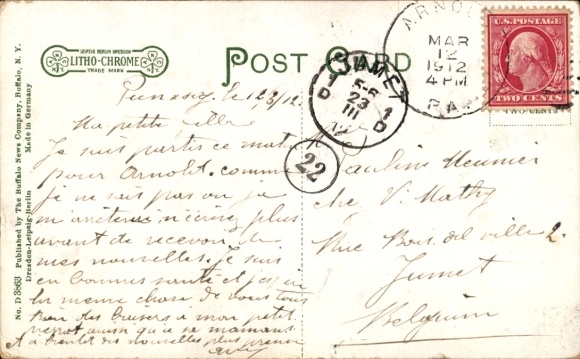 No. D 3863 Published by The Buffalo News Company, Buffalo, N. Y.
Dresden-Leipzig-Berlin Made in Germany
LEIPZIG BERLIN DRESDEN
LITHO-CHROME
TRADE MARK
POST CARD
U.S. POSTAGE
TWO CENTS
TWO CENTS
ARNOLD
MAR
12
1912
4 PM
PA
JUMET
D 1
5-6
23
III
12
D 1
22
le 12 3/12
Ma petite
Je suis partie ce matin
pour Arnold. comme
je ne sais pas ou je
plus
avant de recevoir de
mes nouvelles. Je suis
en bonne santé et
la meme chose de vous tous
bien des baisers a mon petit
aussi qu'a sa maman
A bientot des nouvelles plus
Pauline Meunier
chez V. Mathy
Rue Bois del ville 2.
Jumet
Belgium